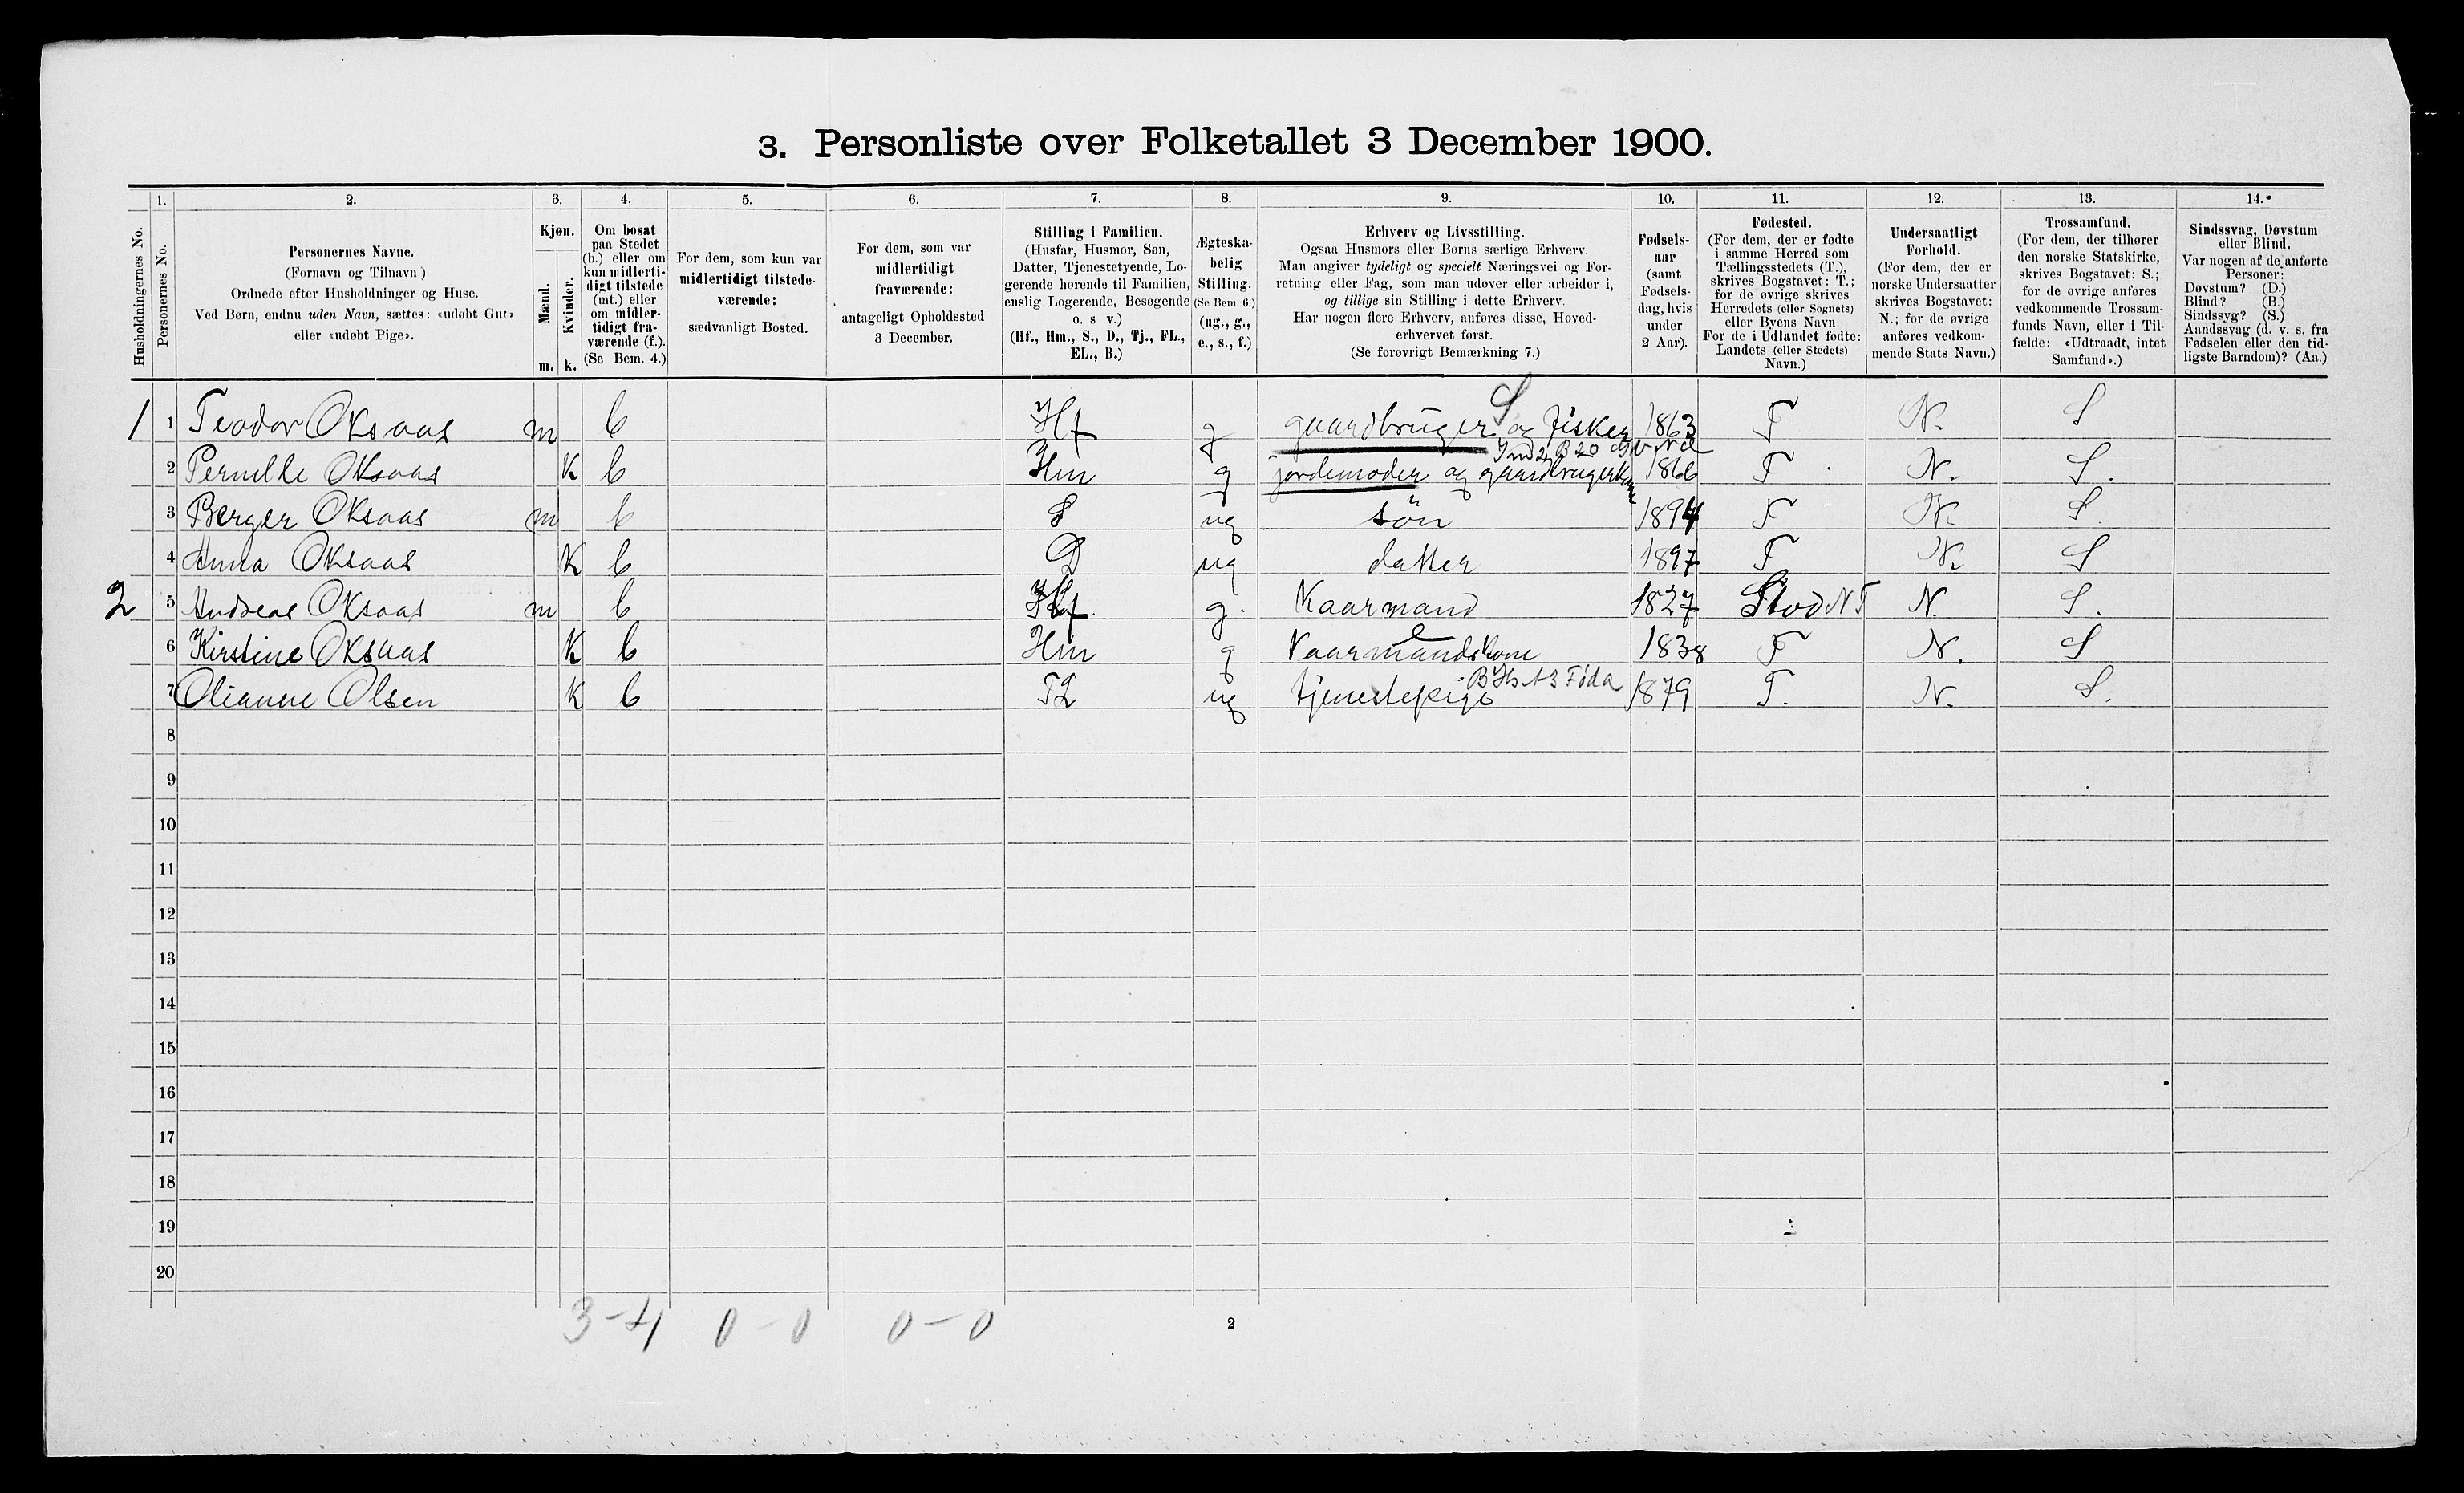 3. Personliste over Folketallet 3 December 1900.
1. 2. 3. 4. 5. 6. 7. 8. 9. 10. 11. 12. 13. 14.
Husholdningernes No.
Personernes No.
Personernes Navne.
(Fornavn og Tilnavn)
Ordnede efter Husholdninger og Huse.
Ved Børn, endnu uden Navn, sættes: «udøbt Gut»
eller «udøbt Pige».
Kjøn.
Mænd.
Kvinder.
m. k.
Om bosat
paa Stedet
(b.) eller om
kun midlerti-
digt tilstede
(mt.) eller
om midler-
tidigt fra-
værende (f.).
(Se Bem. 4.)
For dem, som kun var
midlertidigt tilstede-
værende:
sædvanligt Bosted.
For dem, som var
midlertidigt
fraværende:
antageligt Opholdssted
3 December.
Stilling i Familien.
(Husfar, Husmor, Søn,
Datter, Tjenestetyende, Lo-
gerende hørende til Familien,
enslig Logerende, Besøgende
o. s v.)
(Hf., Hm., S., D., Tj., FL.,
EL., B.)
Ægteska-
belig
Stilling.
(Se Bem. 6.)
(ug., g.,
e., s., f.)
Erhverv og Livsstilling.
Ogsaa Husmors eller Børns særlige Erhverv.
Man angiver tydeligt og specielt Næringsvei og For-
retning eller Fag, som man udøver eller arbeider i,
og tillige sin Stilling i dette Erhverv.
Har nogen flere Erhverv, anføres disse, Hoved-
erhvervet først.
(Se forøvrigt Bemærkning 7.)
Fødsels-
aar
(samt
Fødsels-
dag, hvis
under
2 Aar).
Fødested.
(For dem, der er fødte
i samme Herred som
Tællingsstedets (T.),
skrives Bogstavet: T.;
for de øvrige skrives
Herredets (eller Sognets)
eller Byens Navn
For de i Udlandet fødte:
Landets (eller Stedets)
Navn.)
Undersaatligt
Forhold.
(For dem, der er
norske Undersaatter
skrives Bogstavet:
N.; for de øvrige
anføres vedkom-
mende Stats Navn.)
Trossamfund.
(For dem, der tilhører
den norske Statskirke,
skrives Bogstavet: S.;
for de øvrige anføres
vedkommende Trossam-
funds Navn, eller i Til-
fælde: «Udtraadt, intet
Samfund».)
Sindssvag, Døvstum
eller Blind.
Var nogen af de anførte
Personer:
Døvstum? (D.)
Blind? (B.)
Sindssyg? (S.)
Aandssvag (d. v. s. fra
Fødselen eller den tid-
ligste Barndom)? (Aa.)
S
1 1 Teodor Oksaas m b Hf g gaardbruger og fisker 1863 T N. S
2 Pernille Oksaas K b Hm g jordemoder og gaardbrugerkone 1866 T N. S.
3 Berger Oksaas m b S ug sön 1894 T N. S.
4 Anna Oksaas K b D ug datter 1897 T N. S
2 5 Andreas Oksaas m b Hf. g. Kaarmand 1827 Stod NT N. S.
6 Kirstine Oksaas K b Hm g Kaarmandskone 1838 T N. S
7 Olianne Olsen K b ug tjenestepige 1879 T. N. S.
8
9
10
11
12
13
14
15
16
17
18
19
20
3-4 0-0 0-0
2